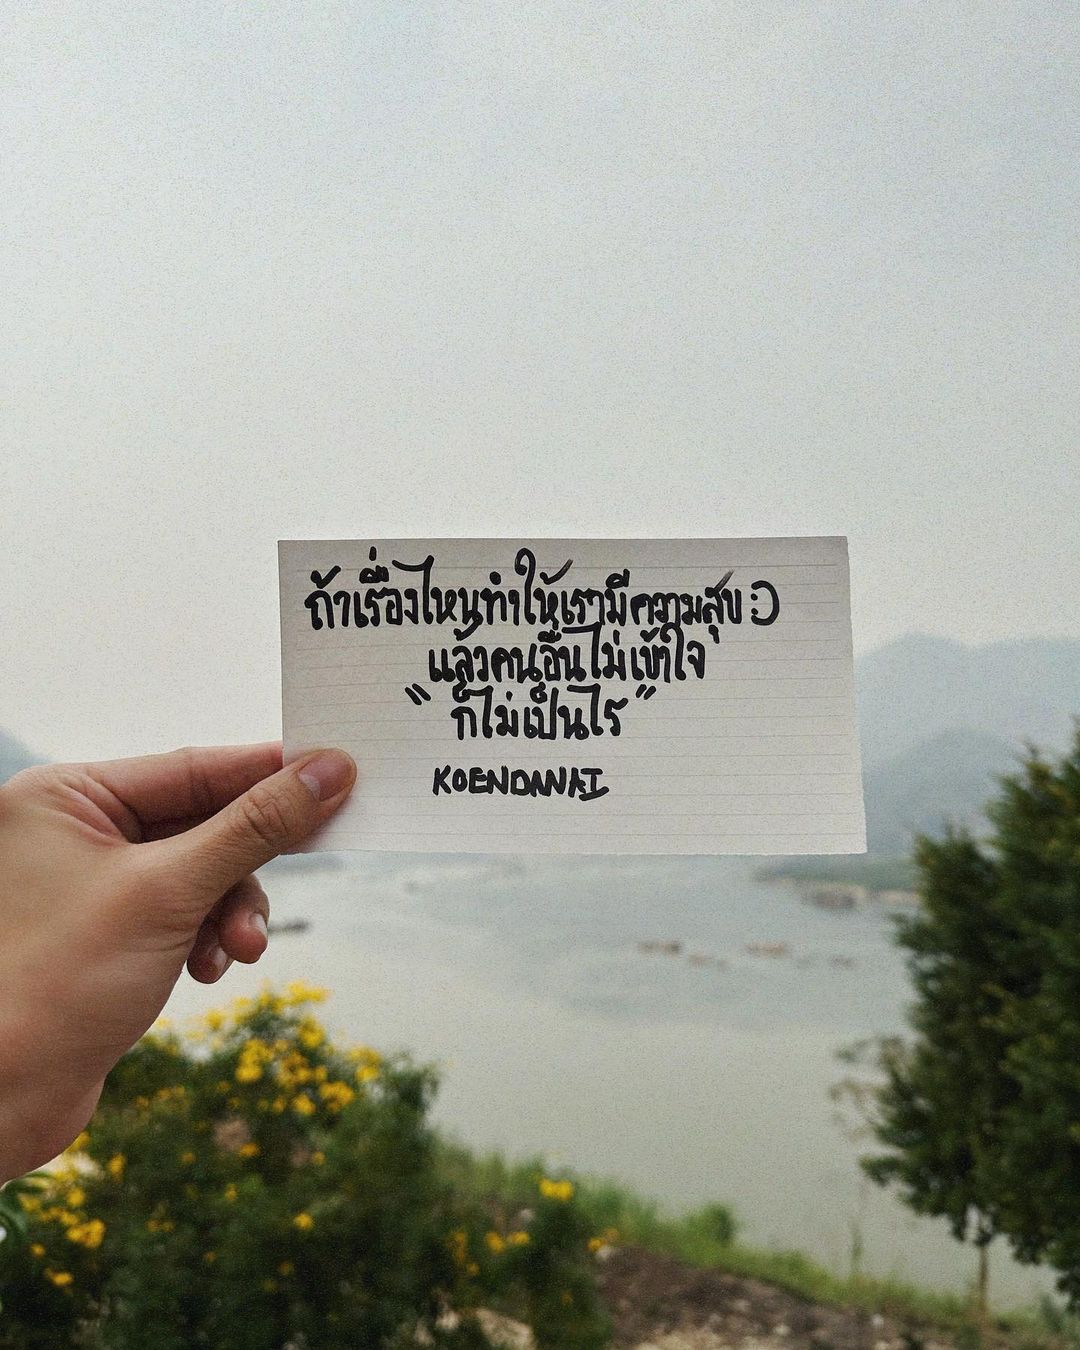 ถ้าเรื่องไหนทำให้เรามีความสุข :)
แล้วคนอื่นไม่เข้าใจ
"ก็ไม่เป็นไร"
KOENDANAI